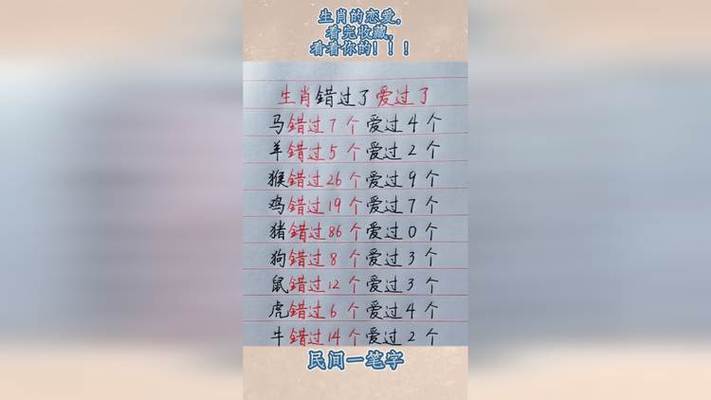 生肖的恋爱,
看完收藏,
看看你的!!!
生肖错过了爱过了
马错过7个爱过4个
羊错过5个爱过2个
猴错过26个爱过9个
鸡错过19个爱过7个
猪错过86个爱过0个
狗错过8个爱过3个
鼠错过12个爱过3个
虎错过6个爱过4个
牛错过14个爱过2个
民间一笔字